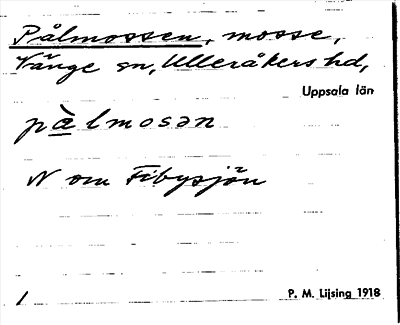 Pålmossen, mosse,
Vänge sn, Ulleråkers hd,
Uppsala län
pàlmosən
N om Fibysjön
1
P. M. Lijsing 1918